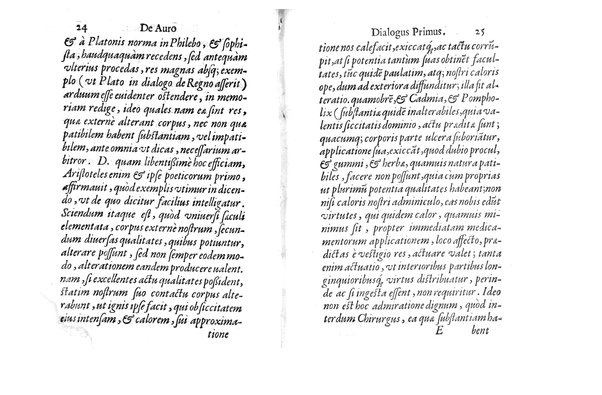 24 De Auro
& à Platonis norma in Philebo, & sophi-
sta, haudquaquàm recedens, sed antequàm
vlterius procedas, res magnas absq; exem-
plo (vt Plato in dialogo de Regno asserit)
arduum esse euidenter ostendere, in memo-
riam redige, ideo quales nam eæ sint res,
quæ externè alterant corpus, nec non quæ
patibilem habent substantiam, vel impati-
bilem, ante omnia vt dicas, necessarium ar-
bitror. D. quam libentissimè hoc efficiam,
Aristoteles enim & ipse poeticorum primo,
affirmauit, quod exemplis vtimur in dicen-
do, vt de quo dicitur facilius intelligatur.
Sciendum itaque est, quòd vniuersi sæculi
elementata, corpus externè nostrum, secun-
dum diuersas qualitates, quibus potiuntur,
alterare possunt, sed non semper eodem mo-
do, alterationem eandem producere valent.
nam, si excellentes actu qualitates possident,
statim nostrum suo contactu corpus alte-
rabunt, vt ignis ipse facit, qui ob siccitatem
eius intensam, & calorem, sui approxima-
tione
Dialogus Primus. 25
tione nos calefacit, exiccatq́, ac tactu corrũ-
pit, at si potentia tantum suas obtinẽt facul-
tates, tũc quidẽ paulatim, atq; nostri caloris
ope, dum ad exteriora diffunditur; illa sit al-
teratio. quamobrẽ, & Cadmia, & Pompho-
lix (substantia quidẽ inalterabiles, quia va-
lentis siccitatis dominio, actu præditæ sunt;
quacumq; corporis parte vlcera suboriũtur,
applicatione sua, exiccãt, quod dubio procul,
& gummi, & herbæ, quamuis natura pati-
biles, facere non possunt, quia cum proprias
vt plurimũ potentia qualitates habeant; non
nisi caloris nostri adminiculo, eas nobis edũt
virtutes, qui quidem calor, quamuis mi-
nimus sit, propter immediatam medica-
mentorum applicationem, loco affecto, præ-
dictas è vestigio res, actuare valet; tanta
enim actuatio, vt interioribus partibus longinquioribusq́,
virtus distribuatur, perin-
de ac si ingesta essent, non requiritur. Ideo
non est hoc admiratione dignum, quòd in-
terdum Chirurgus, ea quæ substantiam ha-
E bent